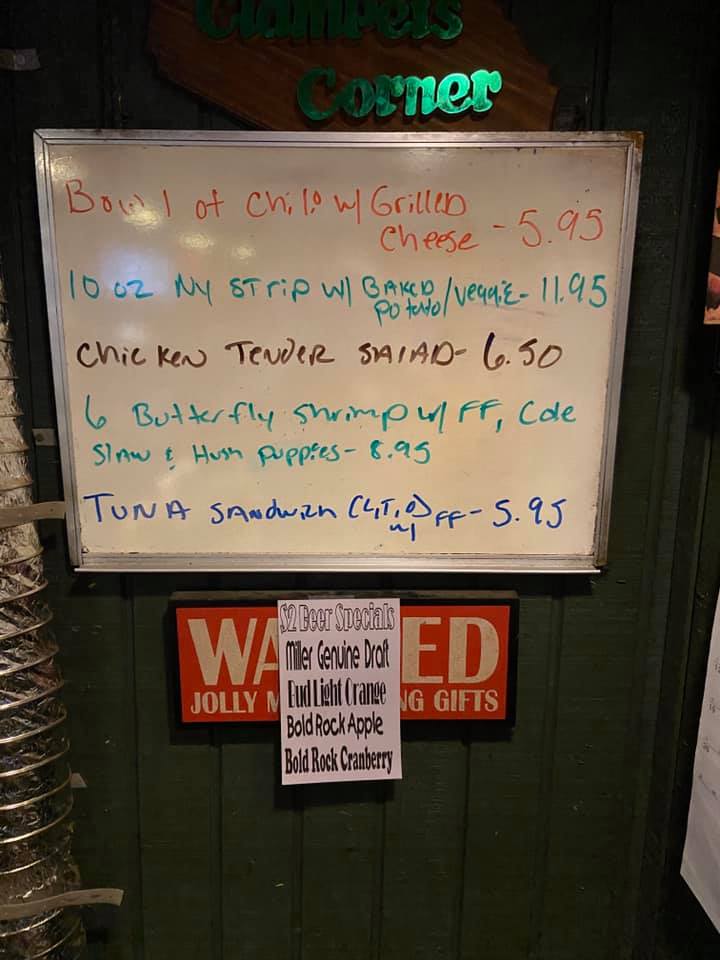 Clampets
Corner
Bowl of Chili w/ Grilled
Cheese - 5.95
10 oz NY Strip w/ Baked
Potato/veggie - 11.95
Chicken Tender Salad - 6.50
6 Butterfly Shrimp w/ FF, Cole
Slaw & Hush Puppies - 8.95
Tuna Sandwich (L,T,O)
w/ FF - 5.95
$2 Beer Specials
WA ED
Miller Genuine Draft
Bud Light Orange
JOLLY M NG GIFTS
Bold Rock Apple
Bold Rock Cranberry